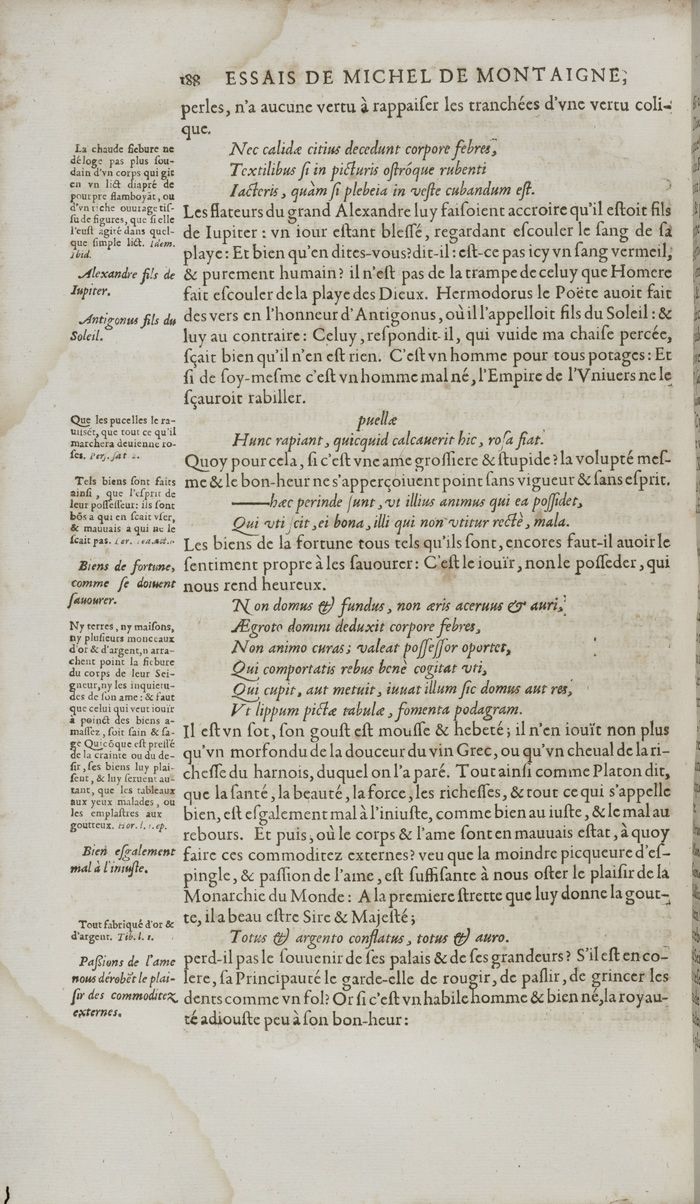 188 ESSAIS DE MICHEL DE MONTAIGNE,
perles, n'a aucune vertu à rappaiſer les tranchées d'vne vertu coli-
que.
Nec calidæ citius decedunt corpore febres,
Textilibus ſi in picturis oſtróque rubenti
Iacteris, quàm ſi plebeia in veſte cubandum eſt.
La chaude fiebure ne
déloge pas plus ſou-
dain d'vn corps qui git
en vn lict diapré de
pourpre flamboyāt, ou
d'vn riche ouurage tiſ-
ſu de figures, que ſi elle
l'euſt agité dans quel-
que ſimple lict. Idem.
Ibid.
Les flateurs du grand Alexandre luy faiſoient accroire qu'il eſtoit fils
de Iupiter : vn iour eſtant bleſſé, regardant eſcouler le ſang de ſa
playe: Et bien qu'en dites-vous? dit-il: eſt-ce pas icy vn ſang vermeil,
& purement humain? il n'eſt pas de la trampe de celuy que Homere
fait eſcouler de la playe des Dieux. Hermodorus le Poëte auoit fait
des vers en l'honneur d'Antigonus, où il l'appelloit fils du Soleil: &
luy au contraire: Celuy, reſpondit-il, qui vuide ma chaiſe percée,
ſçait bien qu'il n'en eſt rien. C'eſt vn homme pour tous potages: Et
ſi de ſoy-meſme c'eſt vn homme mal né, l'Empire de l'Vniuers ne le
ſçauroit rabiller.
Alexandre fils de
Iupiter.
Antigonus fils du
Soleil.
puellæ
Hunc rapiant, quicquid calcauerit hic, roſa fiat.
Que les pucelles le ra-
uiſsēt, que tout ce qu'il
marchera deuienne ro-
ſes. Perſ. ſat 2.
Quoy pour cela, ſi c'eſt vne ame groſſiere & ſtupide? la volupté meſ-
me & le bon-heur ne s'apperçoiuent point ſans vigueur & ſans eſprit.
——hæc perinde ſunt, vt illius animus qui ea poſſidet,
Qui vti ſcit, ei bona, illi qui non vtitur rectè, mala.
Tels biens ſont faits
ainſi, que l'eſprit de
leur poſſeſſeur: ils ſont
bōs à qui en ſcait vſer,
& mauuais a qui ne le
ſcait pas.
Les biens de la fortune tous tels qu'ils ſont, encores faut-il auoir le
ſentiment propre à les ſauourer: C'eſt le iouïr, non le poſſeder, qui
nous rend heureux.
Biens de fortune,
comme ſe doiuent
ſauourer.
Non domus & fundus, non æris aceruus & auri,
Ægroto domini deduxit corpore febres,
Non animo curas; valeat poſſeſſor oportet,
Qui comportatis rebus benè cogitat vti,
Qui cupit, aut metuit, iuuat illum ſic domus aut res,
Vt lippum pictæ tabulæ, fomenta podagram.
Ny terres, ny maiſons,
ny pluſieurs monceaux
d'or & d'argent, n arra-
chent point la fiebure
du corps de leur Sei-
gneur, ny les inquietu-
des de ſon ame: & faut
que celui qui veut iouïr
à poinct des biens a-
maſſez, ſoit ſain & ſa-
ge Quicōque eſt preſſé
de la crainte ou du de-
ſir, ſes biens luy plai-
ſent, & luy ſeruent au-
tant, que les tableaux
aux yeux malades, ou
les emplaſtres aux
goutteux. Hor. l. 1. ep.
Il eſt vn ſot, ſon gouſt eſt mouſſe & hebeté; il n'en iouït non plus
qu'vn morfondu de la douceur du vin Grec, ou qu'vn cheual de la ri-
cheſſe du harnois, duquel on l'a paré. Tout ainſi comme Platon dit,
que la ſanté, la beauté, la force, les richeſſes, & tout ce qui s'appelle
bien, eſt eſgalement mal à l'iniuſte, comme bien au iuſte, & le mal au
rebours. Et puis, où le corps & l'ame ſont en mauuais eſtat, à quoy
faire ces commoditez externes? veu que la moindre picqueure d'eſ-
pingle, & paſſion de l'ame, eſt ſuffiſante à nous oſter le plaiſir de la
Monarchie du Monde: A la premiere ſtrette que luy donne la gout-
te, il a beau eſtre Sire & Majeſté;
Bien eſgalement
mal à l'iniuſte.
Totus & argento conflatus, totus & auro.
Tout fabriqué d'or &
d'argent. Tib. l. 1.
perd-il pas le ſouuenir de ſes palais & de ſes grandeurs? S'il eſt en co-
lere, ſa Principauté le garde-elle de rougir, de paſlir, de grincer les
dents comme vn fol? Or ſi c'eſt vn habile homme & bien né, la royau-
té adiouſte peu à ſon bon-heur:
Paſſions de l'ame
nous dérobēt le plai-
ſir des commoditez
externes.